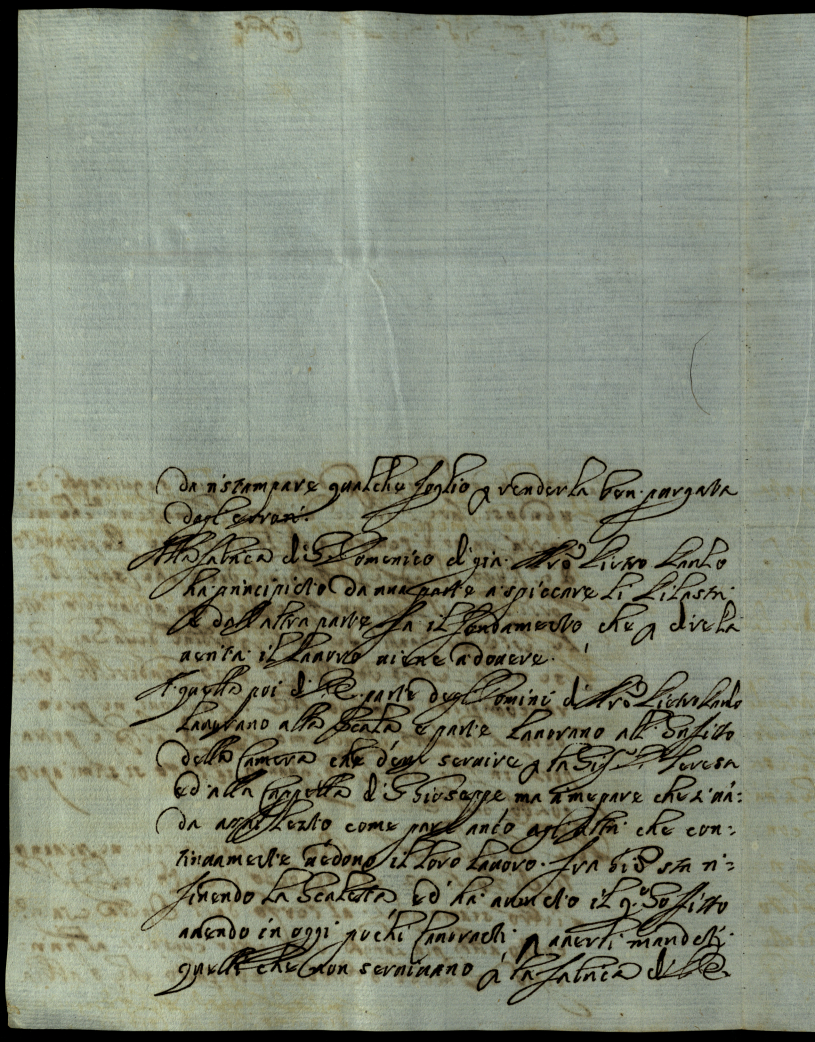 da ristampare qualche foglio p renderla ben purgata
dagl'errori.
Alla fabrica di S. Domenico di già Mro Pietro Paulo
ha principiato da una parte a spiccare li Pilastri.
e dall'altra parte fa il fondamento che p dire la
uerità il lauoro uiene a douere.
A quella poi di parte degl'Omini di Mro Pietro Paulo
Lauorano alla Scala e parte Lauorano all' Sofitto
della Camera che deue seruire p la Sig.ra Teresa
ed alla Cappella di S. Gioseppe ma a me pare che si ua:
da assai lento come pare anco agl'altri che con:
tinuamente uedono il loro lauoro. fra sta ri:
finendo la Scaletta ed ha auuto il Sofitto
auendo in oggi pochi lauoranti p auerli mandati
quelli che non seruiuano à la fabrica di